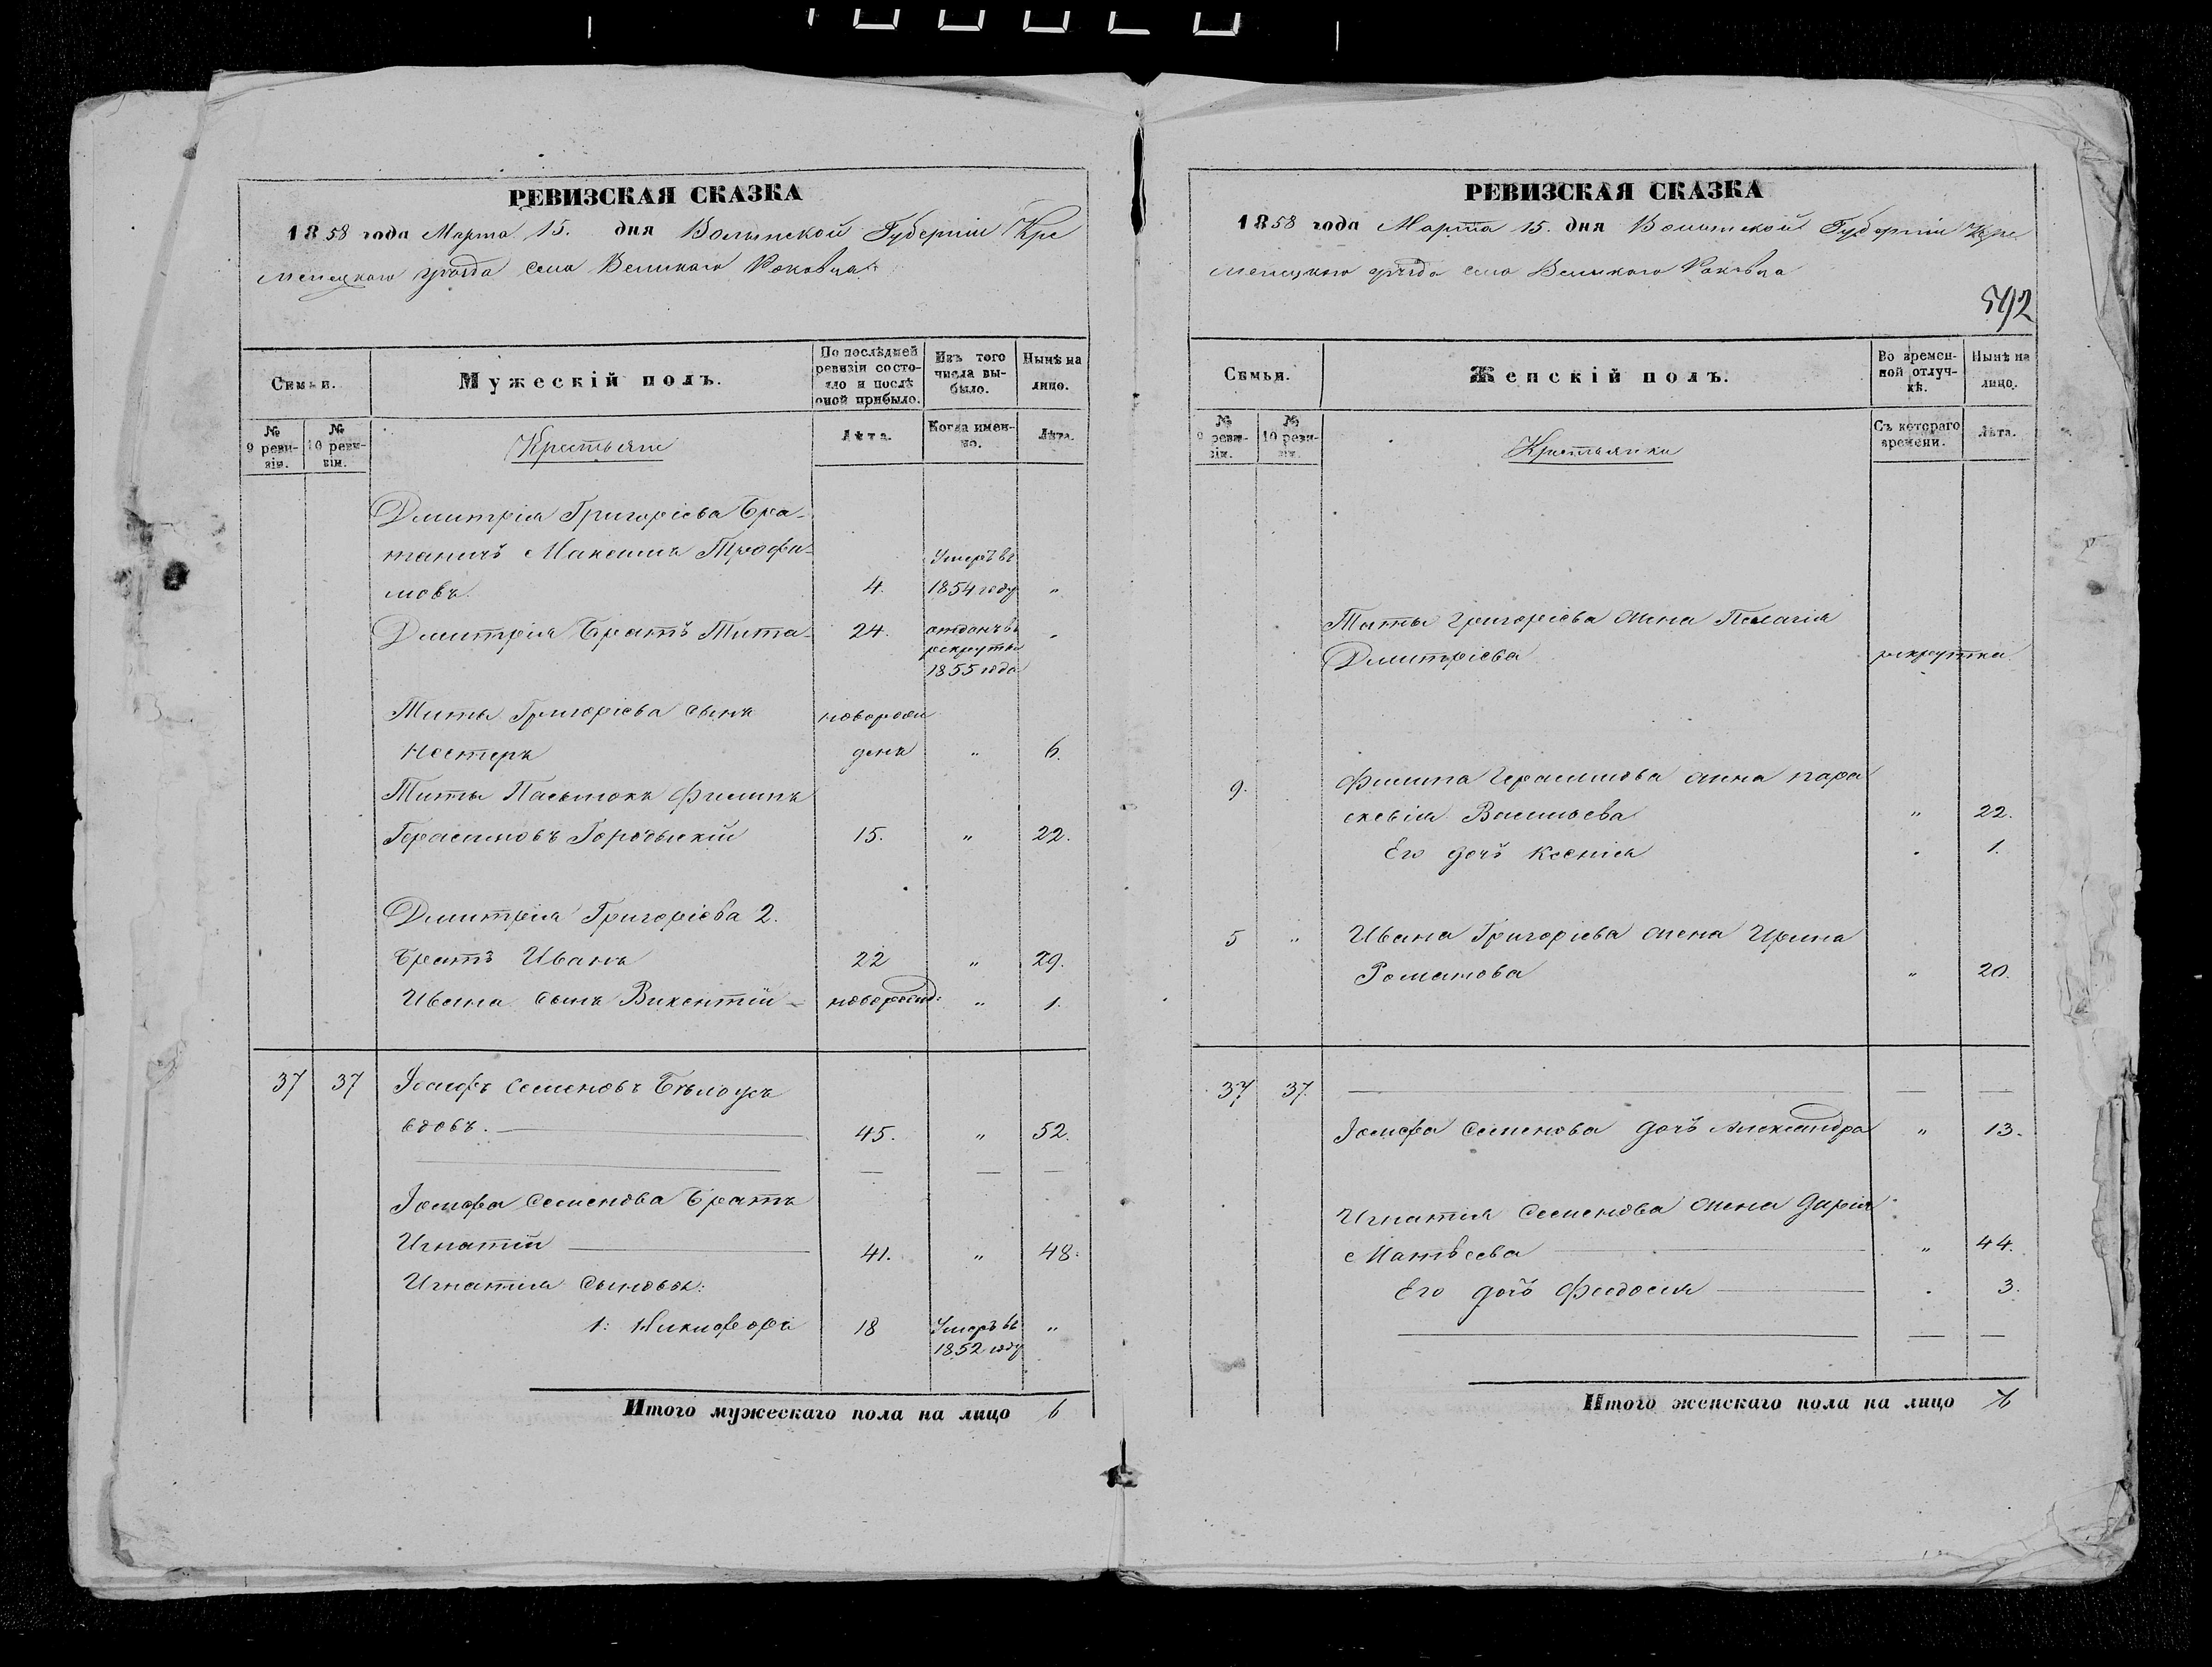 РЕВИЗСКАЯ СКАЗКА
1858 года Марта 15. дня Волынской Губерніи Кре
менецкаго уѣзда села Великаго Раковца
Семьи.
Мужескій полъ.
По послѣдней ревизіи состояло и послѣ оной прибыло.
Изъ того числа выбыло.
Нынѣ на лицо.
№ 9 ревизіи.
№ 10 ревизіи.
Крестьяне
Лѣта.
Когда именно.
Лѣта.
Дмитрія Григорієва бра-
таничъ Максимъ Трофи-
мовъ. 4. Умеръ въ 1854 году "
Дмитрія братъ Тита 24. отданъ въ рекруты 1855 года "
Титы Григорієва сынъ новорож
Нестеръ денъ " 6.
Титы Пасынокъ Филипъ
Герасимовъ Городыскій 15. " 22.
Дмитрія Григорієва 2.
братъ Иванъ 22 " 29.
Ивана сынъ Викентій новорожд: " 1.
37 37 Іосифъ Семеновъ Бѣлоусъ
вдовъ. 45. " 52.
Іосифа Семенова братъ
Игнатій 41. " 48.
Игнатія сыновья:
1: Никифоръ 18 Умеръ въ 1852 году "
Итого мужескаго пола на лицо 6
РЕВИЗСКАЯ СКАЗКА
1858 года Марта 15. дня Волынской Губерніи Кре
менецкаго уѣзда села Великаго Раковца
592
Семьи.
Женскій полъ.
Во временной отлучкѣ.
Нынѣ на лицо.
№ 9 ревизіи.
№ 10 ревизіи.
Крестьянки
Съ котораго времени.
Лѣта.
Титы Григорієва жена Пелагія
Дмитрієва рекрутка
9. Филипа Герасимова жена пара
скевія Васильева " 22.
Его дочь Ксенія " 1.
5 " Ивана Григорієва жена Ирина
Романова " 20.
37 37.
Іосифа Семенова дочь Александра " 13.
Игнатія Семенова жена Дарія
Матвѣева " 44.
Его дочь Феодосія " 3.
Итого женскаго пола на лицо 6